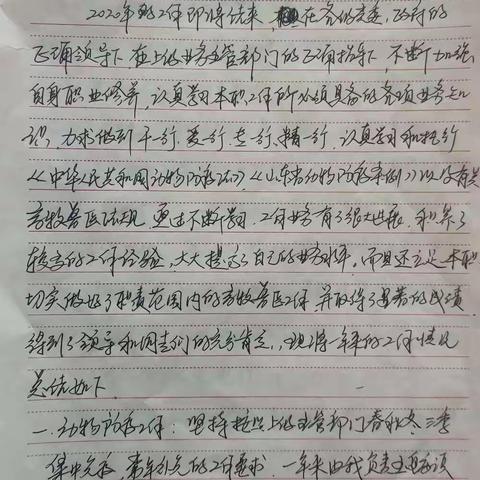 2020年的工作即将结束，在各级党委、政府的
正确领导下，在上级业务主管部门的正确指导下，不断加强
自身职业修养，认真学习本职工作所必须具备的各项业务知
识，力求做到干一行、爱一行、专一行、精一行，认真学习和执行
《中华人民共和国动物防疫法》《山东省动物防疫条例》以及有关
畜牧兽医法规，通过不断学习，工作业务有了很大进展，积累了
较高的工作经验，大大提高了自己的业务水平，而且还立足本职
切实做好了职责范围内的畜牧兽医工作，并取得了显著的成绩，
得到了领导和同志们的充分肯定，现将一年来的工作情况
总结如下
一、动物防疫工作：坚持按照上级主管部门春秋冬三季
集中免疫，常年补免的工作要求，一年来由我负责